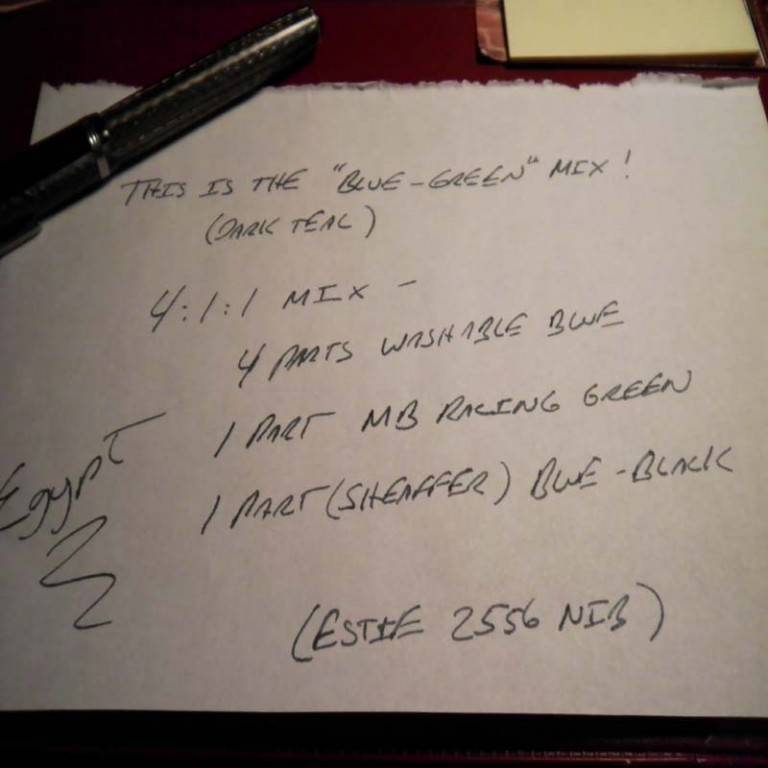 THIS IS THE "BLUE-GREEN" MIX!
(DARK TEAL)
4:1:1 MIX -
4 PARTS WASHABLE BLUE
1 PART MB RACING GREEN
1 PART (SHEAFFER) BLUE-BLACK
Egypt
(ESTIE 2556 NIB)